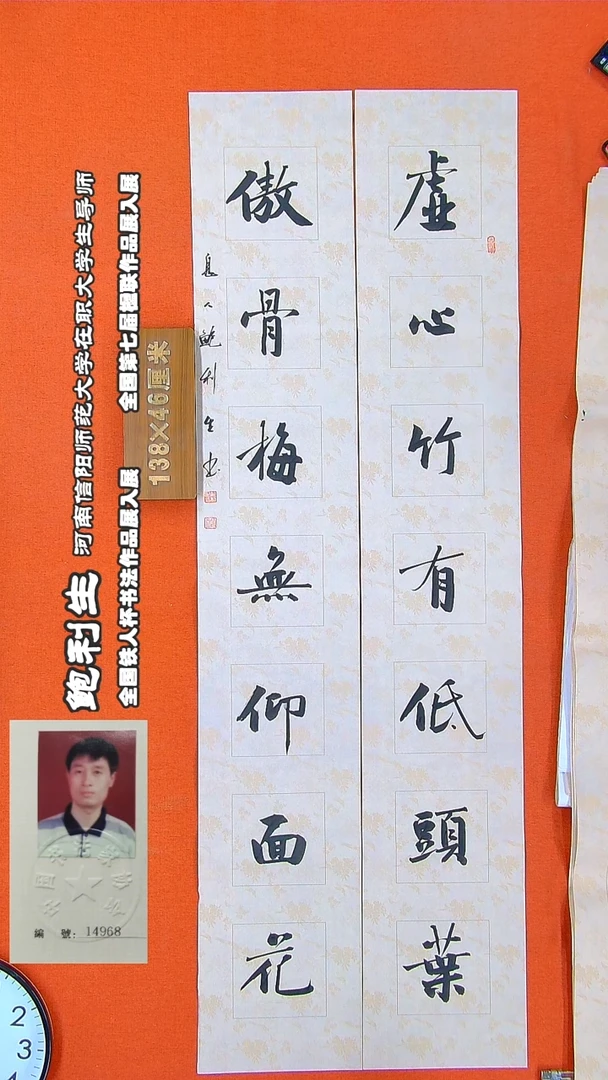 虛心竹有低頭葉
傲骨梅無仰面花
息人鮑利生書
138×46厘米
鲍利生
河南信阳师范大学在职大学生导师
全国铁人杯书法作品展入展
全国第七届楹联作品展入展
編號：14968
2
3
4